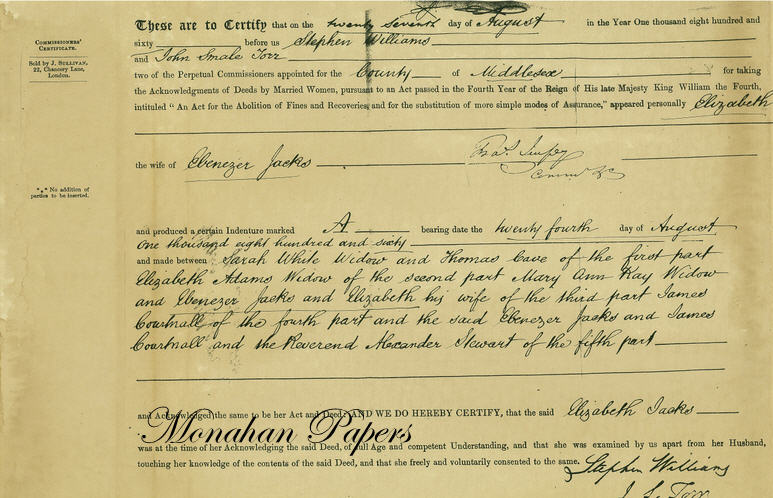 COMMISSIONERS'
CERTIFICATE.
Sold by J. SULLIVAN,
22, Chancery Lane,
London.
These are to Certify that on the twenty seventh day of August in the Year One thousand eight hundred and
sixty before us Stephen Williams
and John Smale Torr
two of the Perpetual Commissioners appointed for the County of Middlesex for taking
the Acknowledgments of Deeds by Married Women, pursuant to an Act passed in the Fourth Year of the Reign of His late Majesty King William the Fourth,
intituled "An Act for the Abolition of Fines and Recoveries, and for the substitution of more simple modes of Assurance," appeared personally Elizabeth
the wife of Ebenezer Jacks
*** No addition of
parties to be inserted.
and produced a certain Indenture marked A bearing date the twenty fourth day of August
One thousand eight hundred and sixty
and made between Sarah White Widow and Thomas Cave of the first part
Elizabeth Adams Widow of the second part Mary Ann Kay Widow
and Ebenezer Jacks and Elizabeth his wife of the third part James
Courtnall of the fourth part and the said Ebenezer Jacks and James
Courtnall and the Reverend Alexander Stewart of the fifth part
and Acknowledged the same to be her Act and Deed: AND WE DO HEREBY CERTIFY, that the said Elizabeth Jacks
Monahan Papers
was at the time of her Acknowledging the said Deed, of full Age and competent Understanding, and that she was examined by us apart from her Husband,
touching her knowledge of the contents of the said Deed, and that she freely and voluntarily consented to the same.
Stephen Williams
J. S. Torr